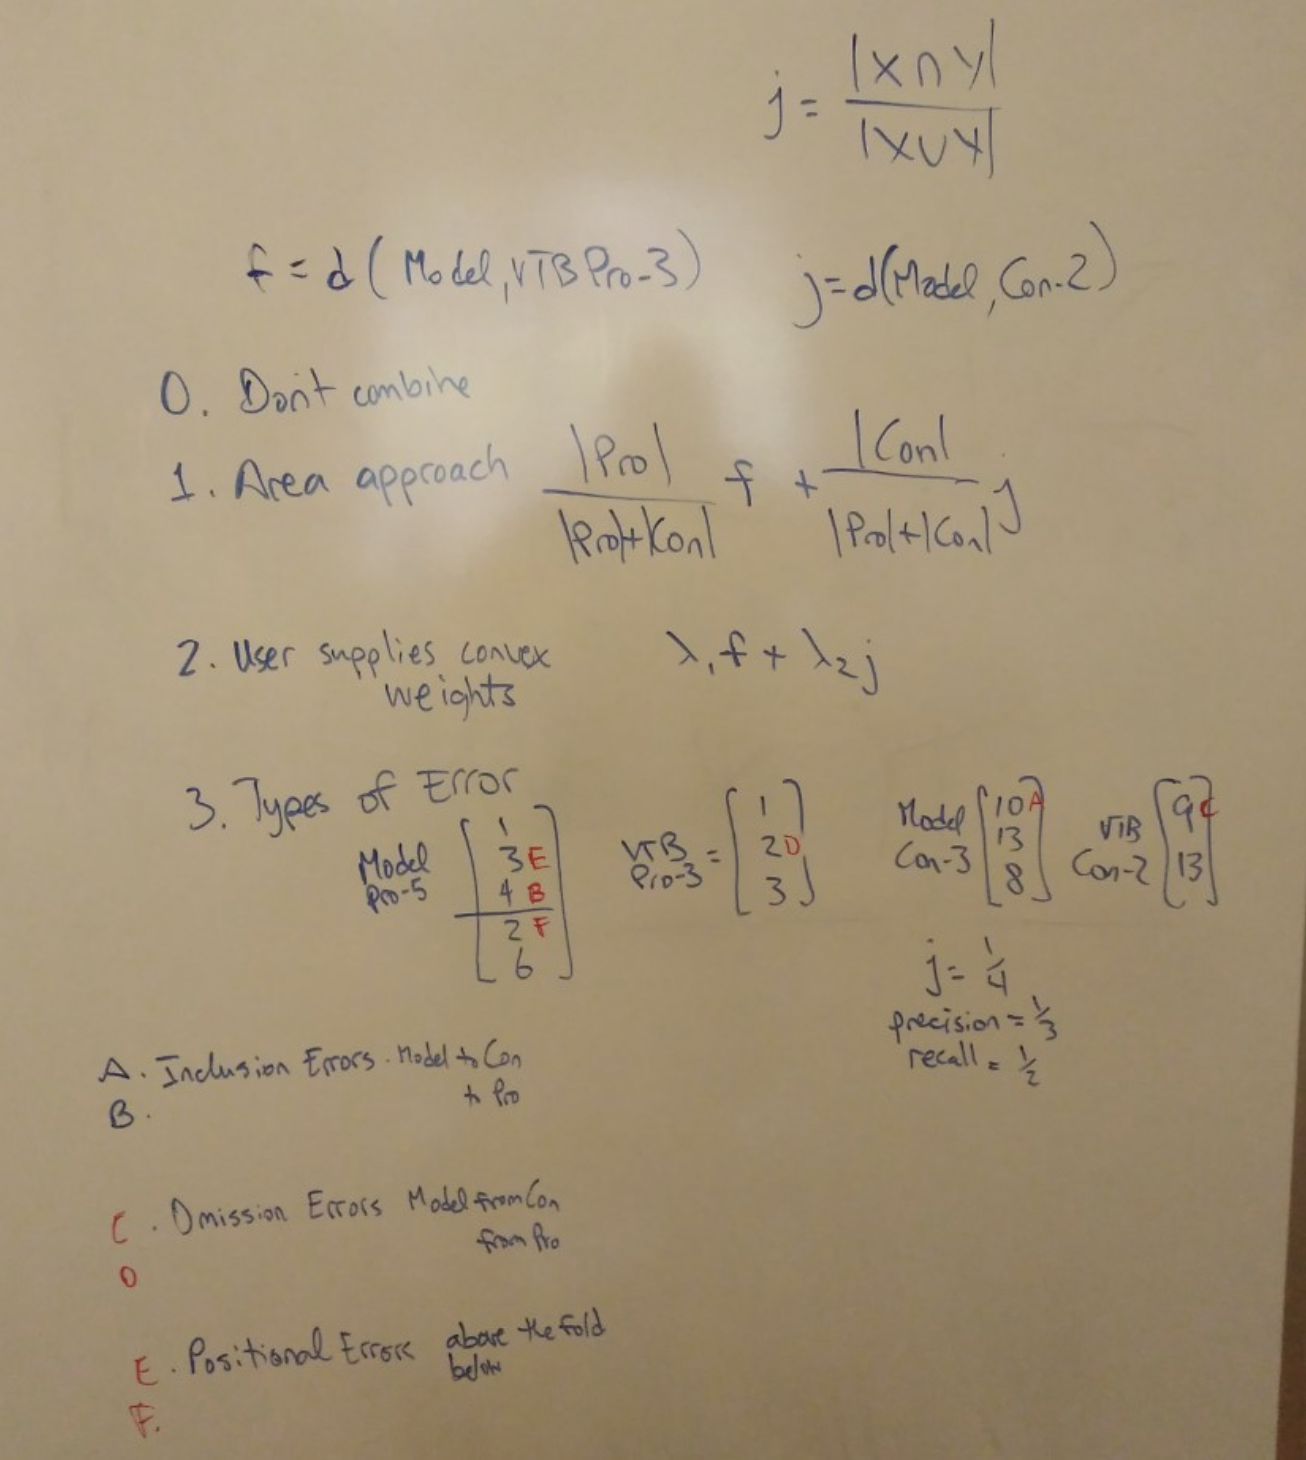 j = |X∩Y| / |X∪Y|
f = d(Model, VTB Pro-3) j=d(Model, Con-2)
0. Don't combine
1. Area approach |Pro| / |Pro|+|Con| f + |Con| / |Pro|+|Con| j
2. User supplies convex λ₁f + λ₂j
weights
3. Types of Error
Model Pro-5 [1 3E 4B 2F 6]
VTB Pro-3 = [1 2D 3]
Model Con-3 [10A 13 8]
VTB Con-2 [9C 13]
j = 1/4
precision = 1/3
recall = 1/2
A. Inclusion Errors. Model to Con
B. to Pro
C. Omission Errors Model from Con
D from Pro
E. Positional Errors above the fold
F. below